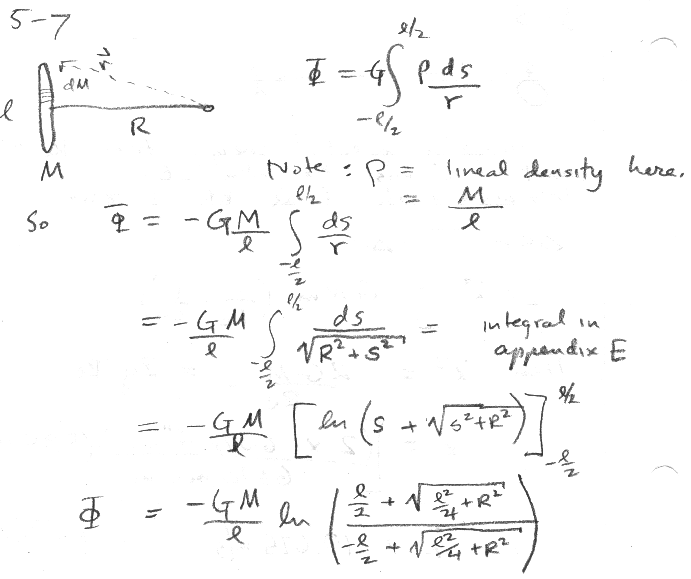 5-7
dM
r⃗
l
R
M
Φ = G ∫_{-l/2}^{l/2} ρ ds / r
Note : ρ = lineal density here.
= M / l
So Φ = - G M / l ∫_{-l/2}^{l/2} ds / r
= - G M / l ∫_{-l/2}^{l/2} ds / √(R² + s²) = integral in appendix E
= - G M / l [ ln ( s + √(s² + R²) ) ]_{-l/2}^{l/2}
Φ = - G M / l ln ( (l/2 + √(l²/4 + R²)) / (-l/2 + √(l²/4 + R²)) )